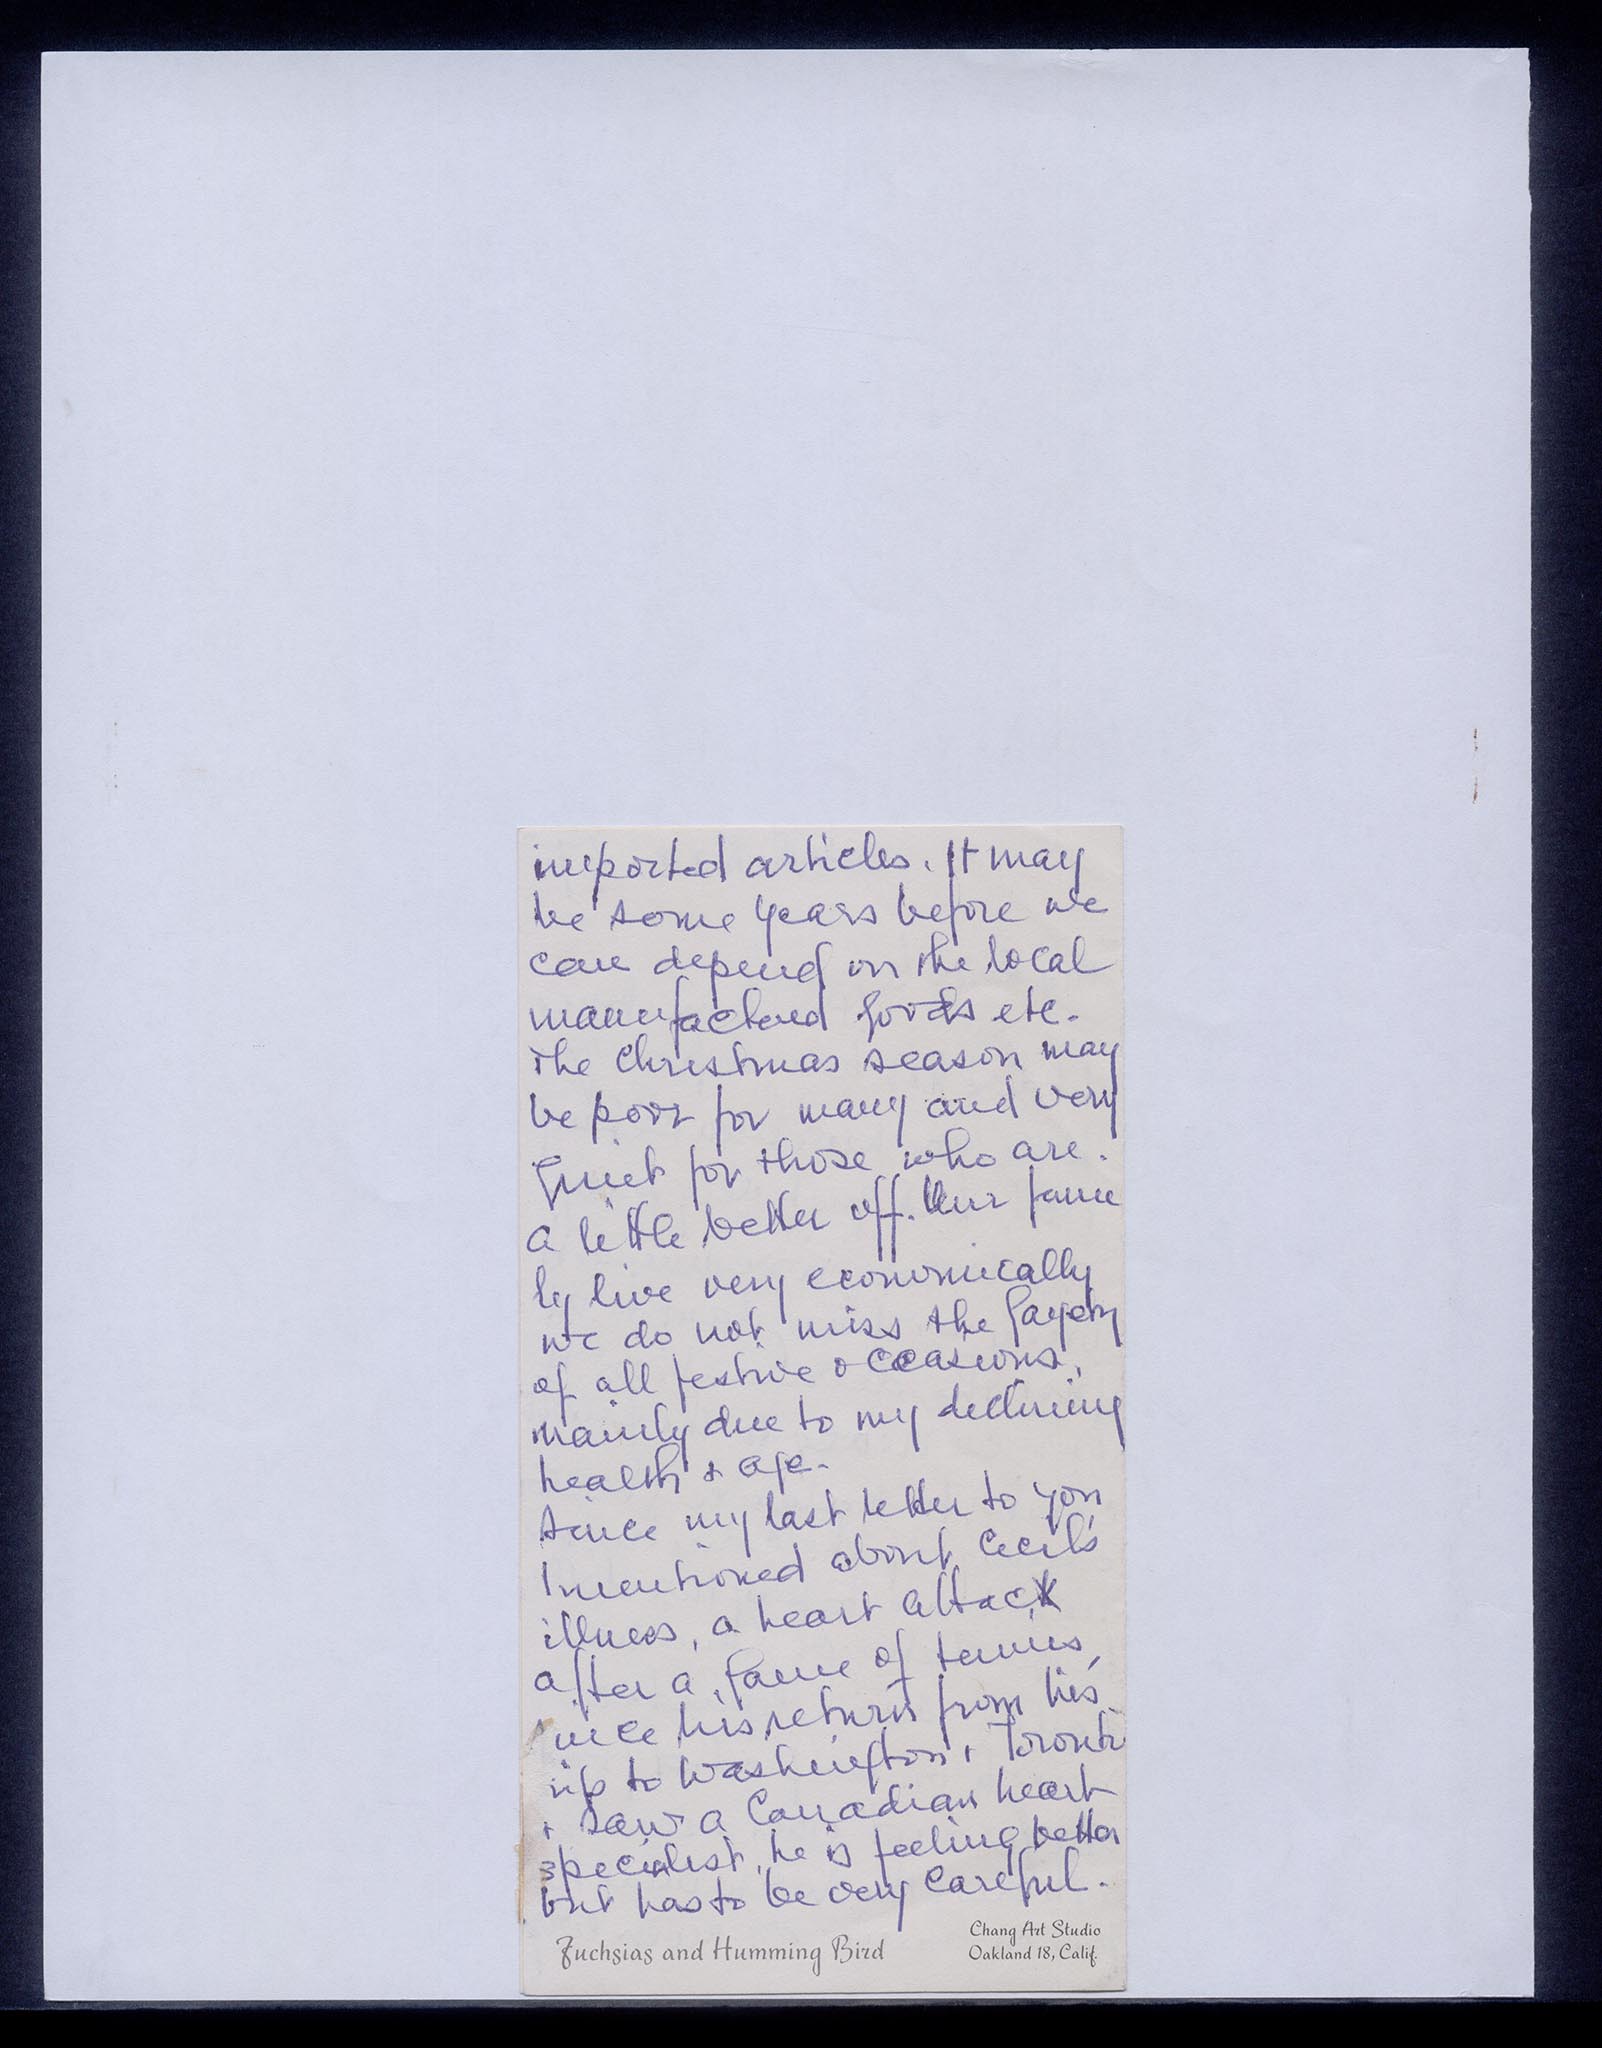 imported articles. It may
be some years before we
can depend on the local
manufactured goods etc.
The Christmas season may
be poor for many and very
quiet for those who are
a little better off. Our fami
ly live very economically
we do not miss the gayety
of all festive occasions,
mainly due to my declining
health & age.
Since my last letter to you
I mentioned about Cecil's
illness, a heart attack
after a game of tennis,
since his return from his
trip to Washington & Toronto
& saw a Canadian heart
specialist, he is feeling better
but has to be very careful.
Fuchsias and Humming Bird
Chang Art Studio
Oakland 18, Calif.